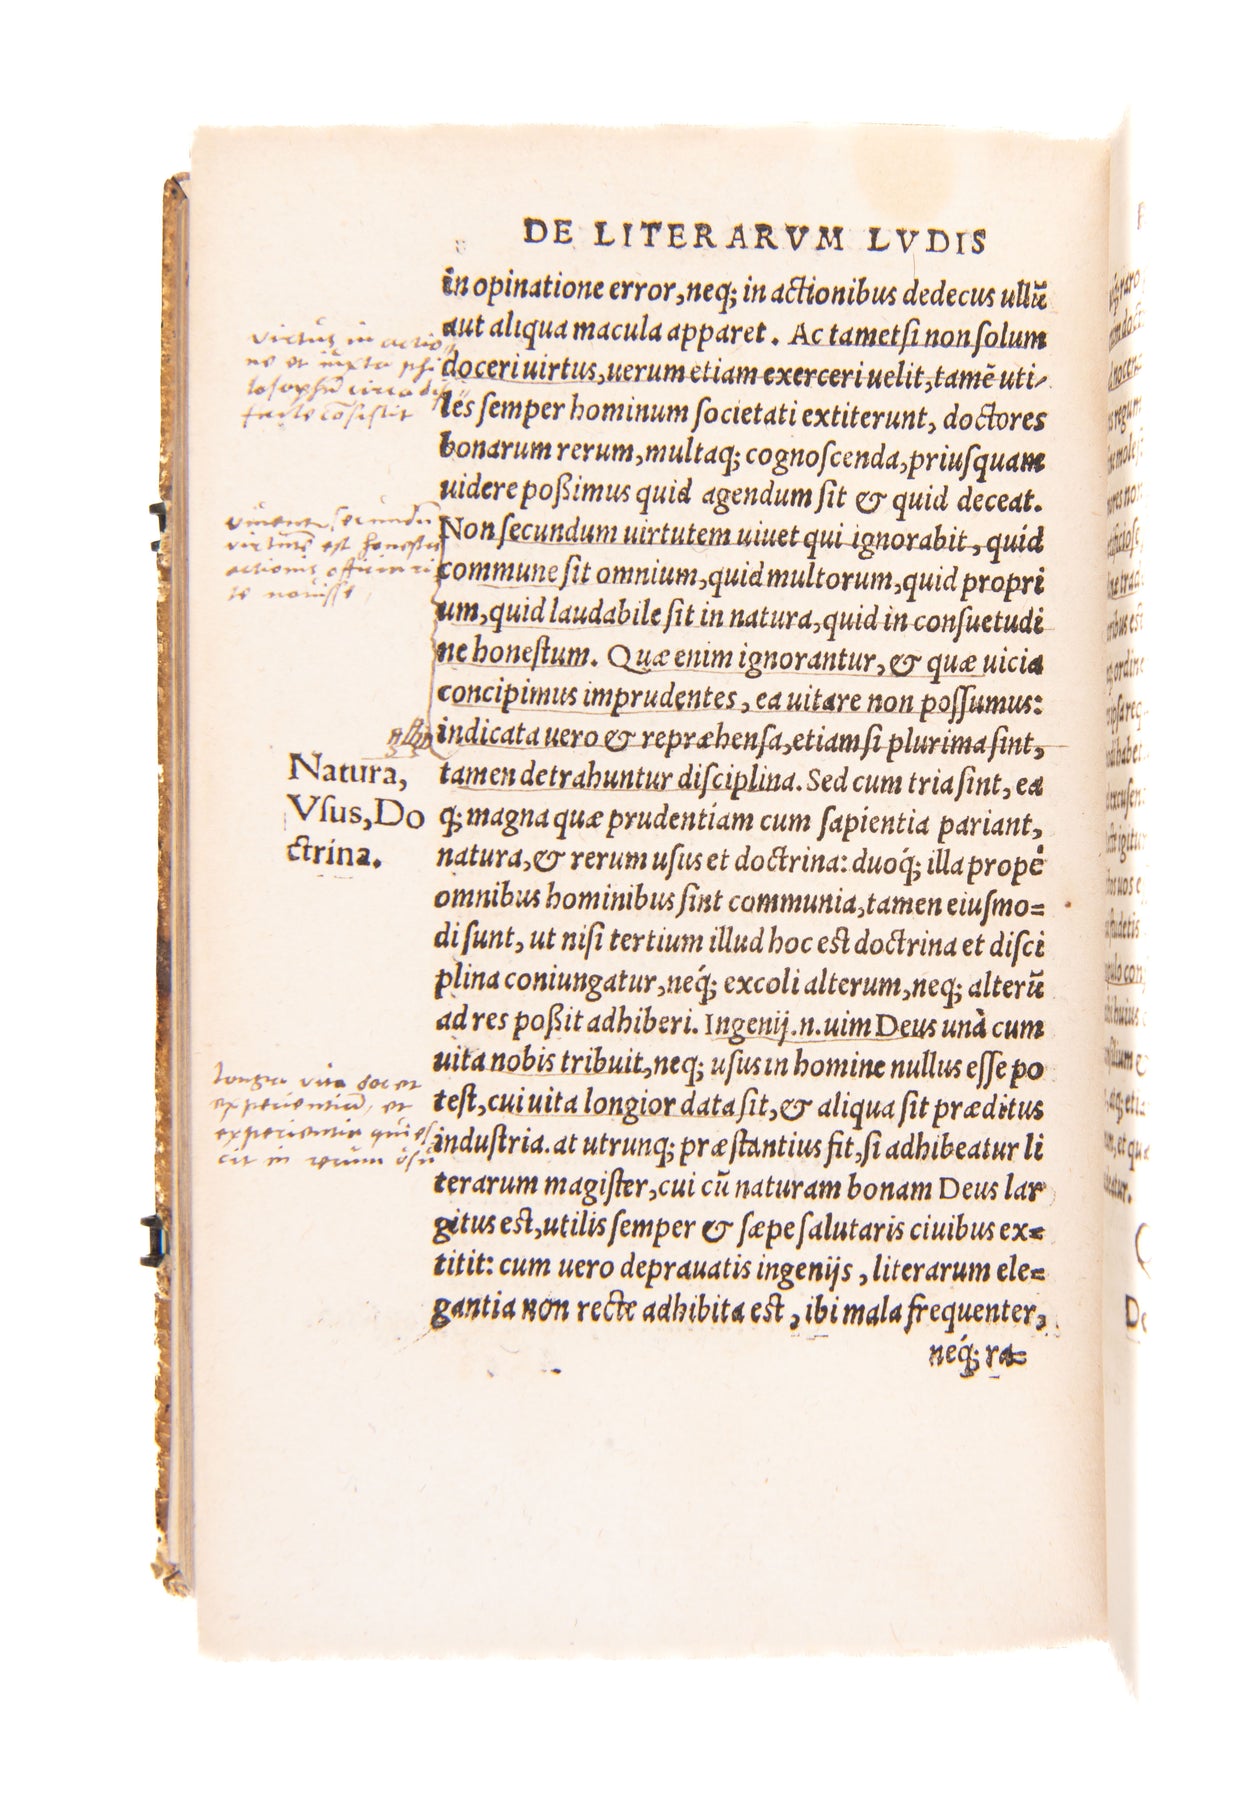 DE LITERARVM LVDIS
in opinatione error, neq; in actionibus dedecus ullũ
aut aliqua macula apparet. Ac tametſi non ſolum
doceri uirtus, uerum etiam exerceri uelit, tamẽ uti⸗
les ſemper hominum ſocietati extiterunt, doctores
bonarum rerum, multaq; cognoſcenda, priuſquam
uidere poßimus quid agendum ſit & quid deceat.
Non ſecundum uirtutem uiuet qui ignorabit, quid
commune ſit omnium, quid multorum, quid propri
um, quid laudabile ſit in natura, quid in conſuetudi
ne honeſtum. Quæ enim ignorantur, & quæ uicia
concipimus imprudentes, ea uitare non poſſumus:
indicata uero & repræhenſa, etiamſi plurima ſint,
tamen detrahuntur diſciplina. Sed cum tria ſint, ea
q; magna quæ prudentiam cum ſapientia pariant,
natura, & rerum uſus et doctrina: duoq́; illa propè
omnibus hominibus ſint communia, tamen eiuſmo⸗
di ſunt, ut niſi tertium illud hoc est doctrina et diſci
plina coniungatur, neq́; excoli alterum, neq; alterũ
ad res poßit adhiberi. Ingenij .n. uim Deus unà cum
uita nobis tribuit, neq; uſus in homine nullus eſſe po
test, cui uita longior data ſit, & aliqua ſit præditus
industria. at utrunq; præstantius fit, ſi adhibeatur li
terarum magiſter, cui cũ naturam bonam Deus lar
gitus est, utilis ſemper & ſæpe ſalutaris ciuibus ex⸗
titit: cum uero deprauatis ingenijs, literarum ele⸗
gantia non recte adhibita est, ibi mala frequenter,
neq́; ra⸗
virtus in actio
ne et iuxta phi
losophũ circa dif
ficile cõsistit
vivere secundũ
virtutẽ est honestæ
actionis officium ri
te novisse
Natura,
Vſus, Do
ctrina.
longa vita docet
experientiã, et
experientia
cit in rerum usu